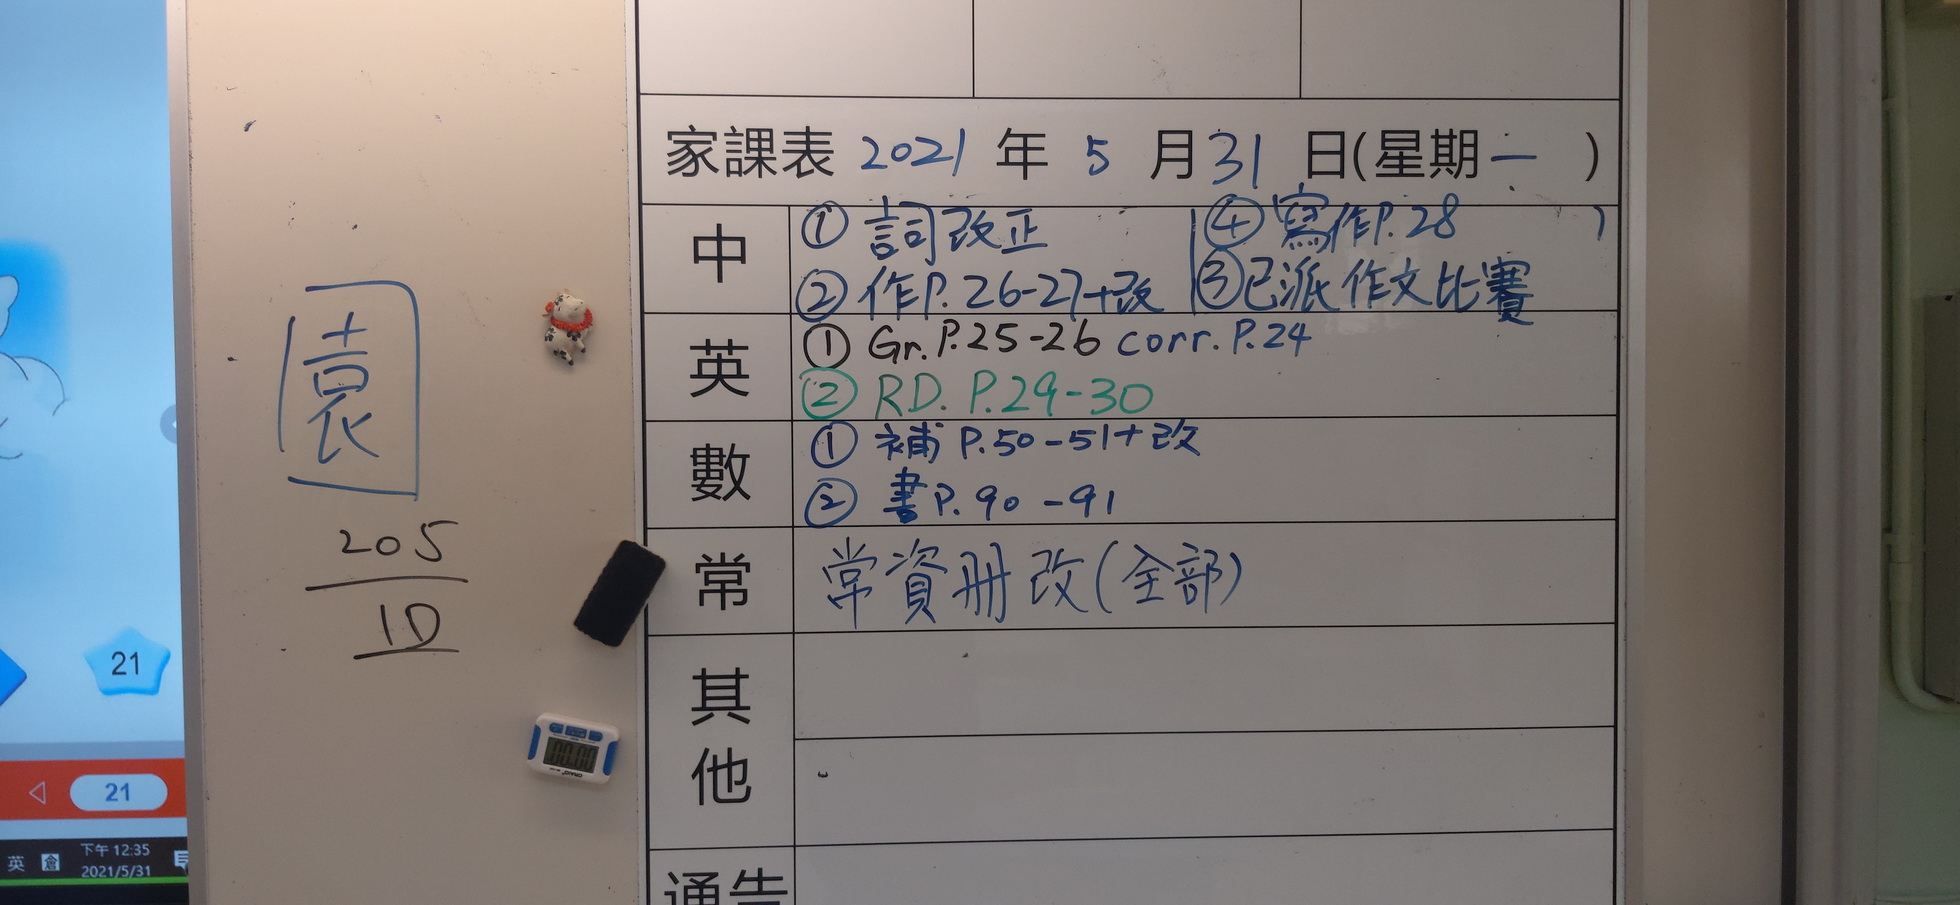 家課表 2021 年 5 月 31 日(星期一 )
中
① 詞改正
② 作P.26-27+改
④ 寫作P.28
③ 已派作文比賽
英
① Gr. P.25-26 corr. P.24
② RD. P.29-30
數
① 補 P.50-51+改
② 書P.90-91
常
常資冊改(全部)
其他
通告
園
205
1D
00:00
21
21
英 倉 下午 12:35
2021/5/31